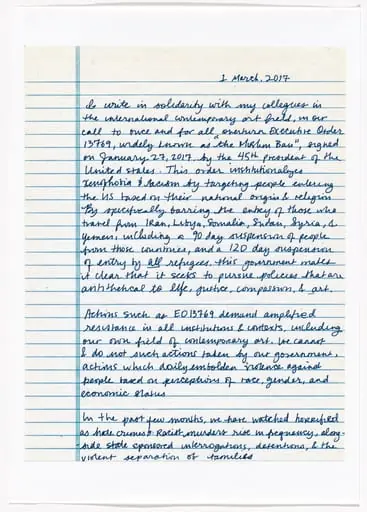 1 March, 2017
I write in solidarity with my collegues in
the international contemporary art field, in our
call to once and for all overturn Executive Order
13769, widely known as "the Muslim Ban", signed
on January 27, 2017 by the 45th president of the
United States. This order institutionalizes
xenophobia & racism by targeting people entering
the US based on their national origin & religion
By specifically barring the entry of those who
travel from Iran, Libya, Somalia, Sudan, Syria, &
Yemen, including a 90 day suspension of people
from those countries, and a 120 day suspension
of entry by all refugees, this government makes
it clear that it seeks to pursue policies that are
antithetical to life, justice, compassion, & art.
Actions such as EO13769 demand amplified
resistance in all institutions & contexts, including
our own field of contemporary art. We cannot
& do not such actions taken by our government,
actions which daily embolden violence against
people based on perceptions of race, gender, and
economic status
In the past few months, we have watched horrified
as hate crimes & racist murders rise in frequency, along-
side state sponsored interrogations, detentions, & the
violent separation of families